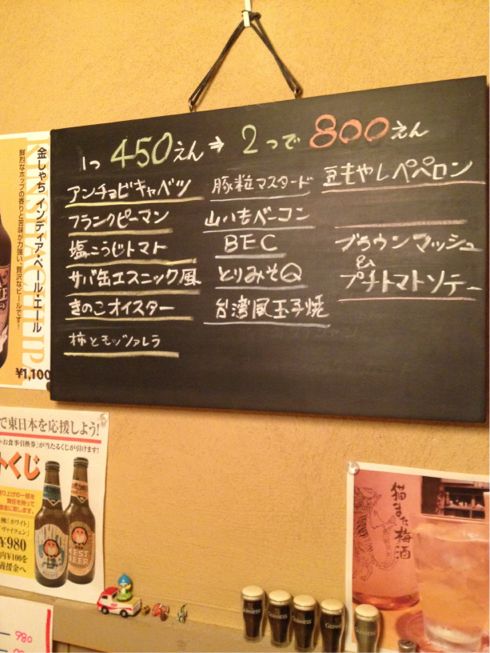 1つ 450えん ⇒ 2つで 800えん
アンチョビキャベツ
フランクピーマン
塩こうじトマト
サバ缶エスニック風
きのこオイスター
柿ともッツァレラ
豚粒マスタード
山いもベーコン
BEC
とりみそQ
台湾風玉子焼
豆もやしペペロン
ブラウンマッシュ
&
プチトマトソテー
金しゃち インディア・ペール・エール
鮮烈なホップの香りと苦味が力強い、贅沢なビールです!
¥1,100
で東日本を応援しよう!
お食事引換券」が当たるくじが引けます!
くじ
¥980
NEST
BEER
猫また梅酒
GUINNESS
980